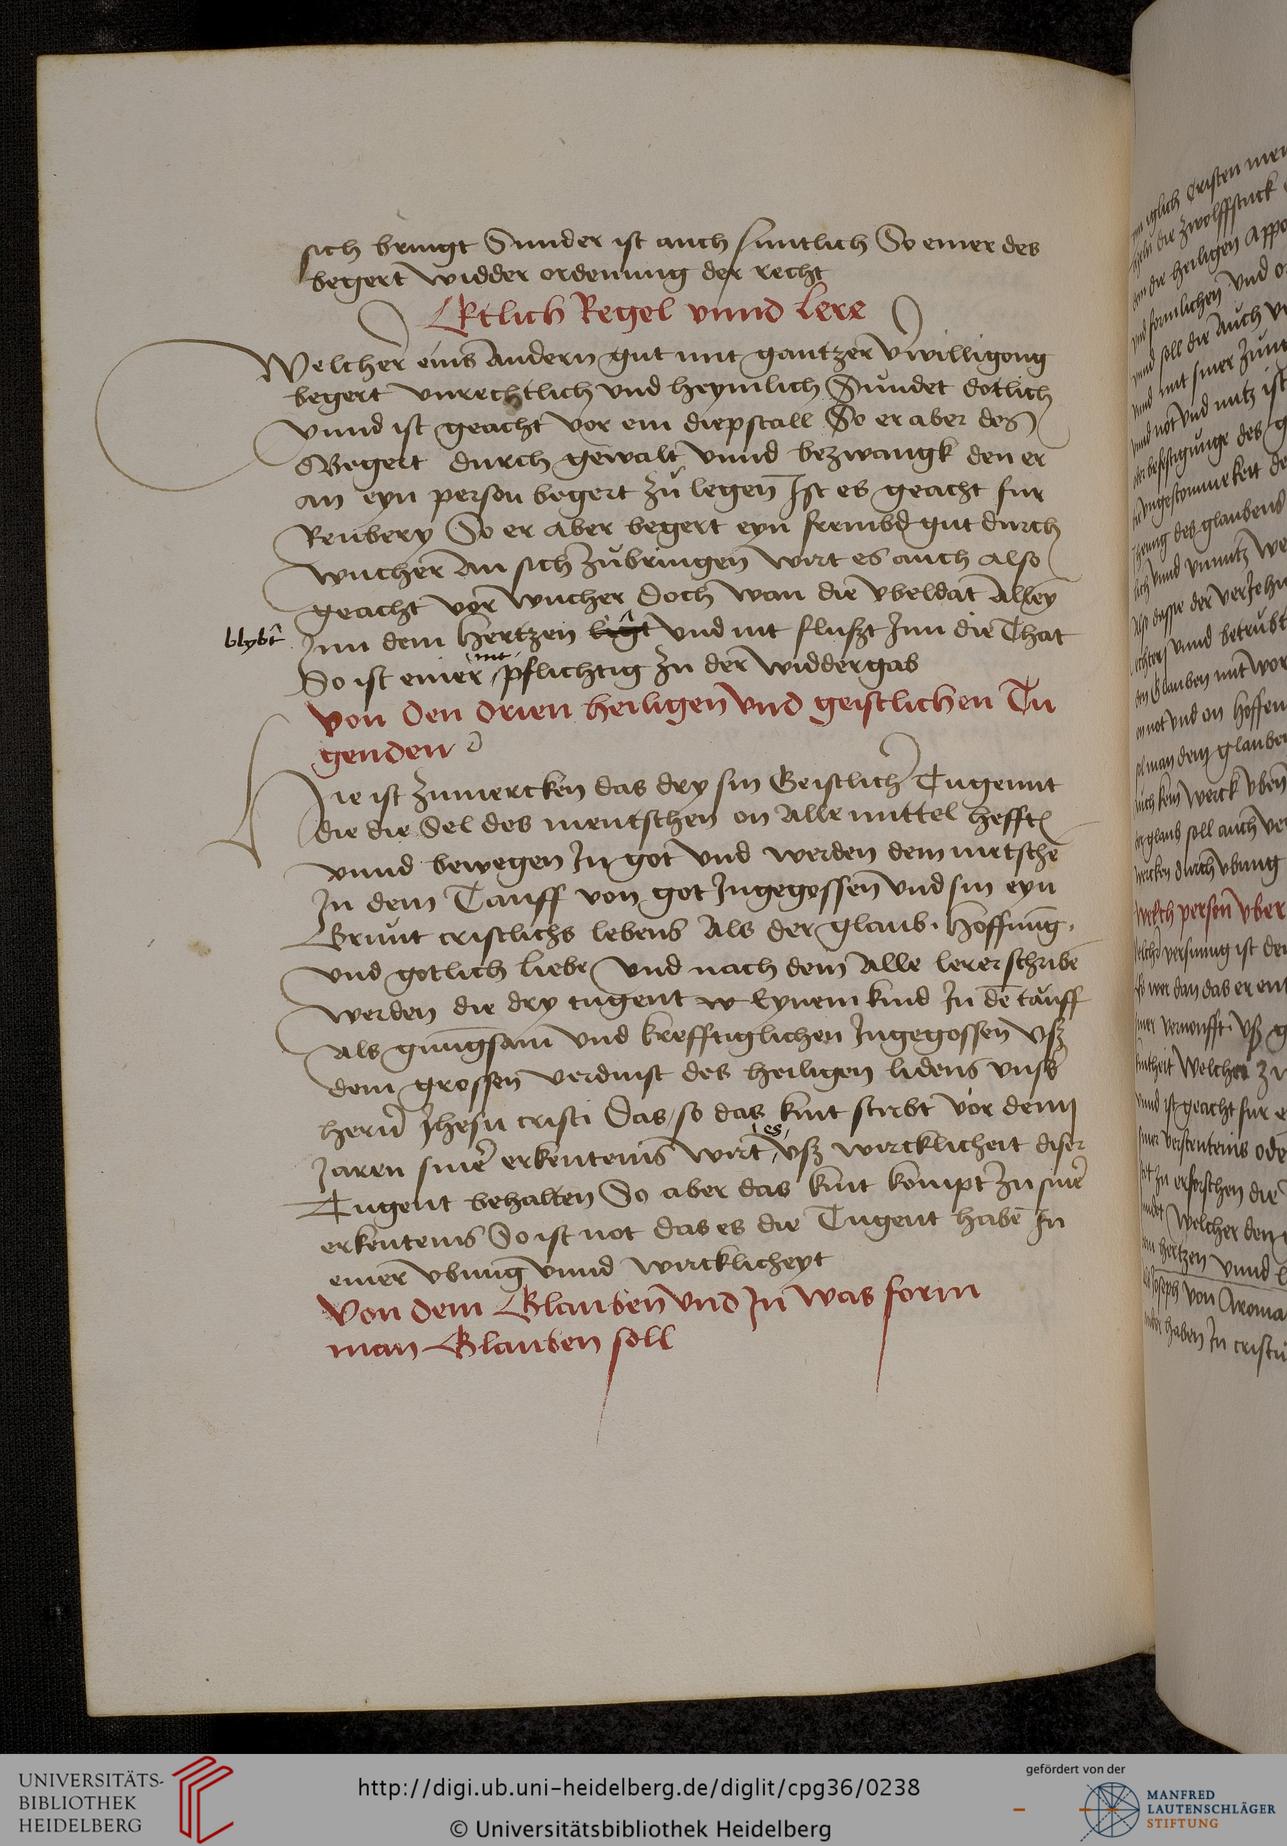 sich bringt Sunder ist auch suntlich So einer des
begert widder ordenung der recht
Etlich Regel vnnd lere
Welcher eins Andern gut mit gantzer v̄willigong
begert vnrechtlich vnd heymlich Sundet dotlich
vnnd ist geacht vor ein diepstall So er aber des
Begert durch gewalt vnnd bezwangk den er
an eyn person begert zu legen Ist es geacht fur
Reubery So er aber begert eyn frembd gut durch
wucher An sich zubringen wirt es auch also
geacht vor wucher Doch wan die vbeldat Alley
blybt
Inn dem Hertzen ligt vnd nit flußt Inn die That
So ist einer nit pflichtig zu der widdergab
Von den drien heiligen vnd geistlichen Tu
genden
Hie ist zumercken das dry sin Geistlich Tugennt
die die Sel des mentschen on Alle mittel hefft
vnnd bewegen In got vnd werden dem metsche
In dem Tauff von got Ingegossen vnd sin eyn
Grunt cristlichs lebens Als der glaub. Hoffnung.
vnd gotlich liebe vnd nach dem Alle lerer schribē
werden die dry tugent eynem kind In dē tauff
Als gnungsam vnd krefftiglichen Ingegossen vß
dem grossen verdinst des heiligen lidens vnsˢ
hern Jhesu cristi Das so das kint stirbt vor denn
Jaren sinē erkentenis wirt es vß wircklicheit diser
Tugent behalten So aber das kint kompt zu sinē
erkentenis So ist not das es die Tugent habē In
einer vbung vnnd wircklicheyt
Von dem Glauben vnd In was form
man Glauben soll
UNIVERSITÄTS-
BIBLIOTHEK
HEIDELBERG
http://digi.ub.uni-heidelberg.de/diglit/cpg36/0238
© Universitätsbibliothek Heidelberg
gefördert von der
MANFRED
LAUTENSCHLÄGER
STIFTUNG